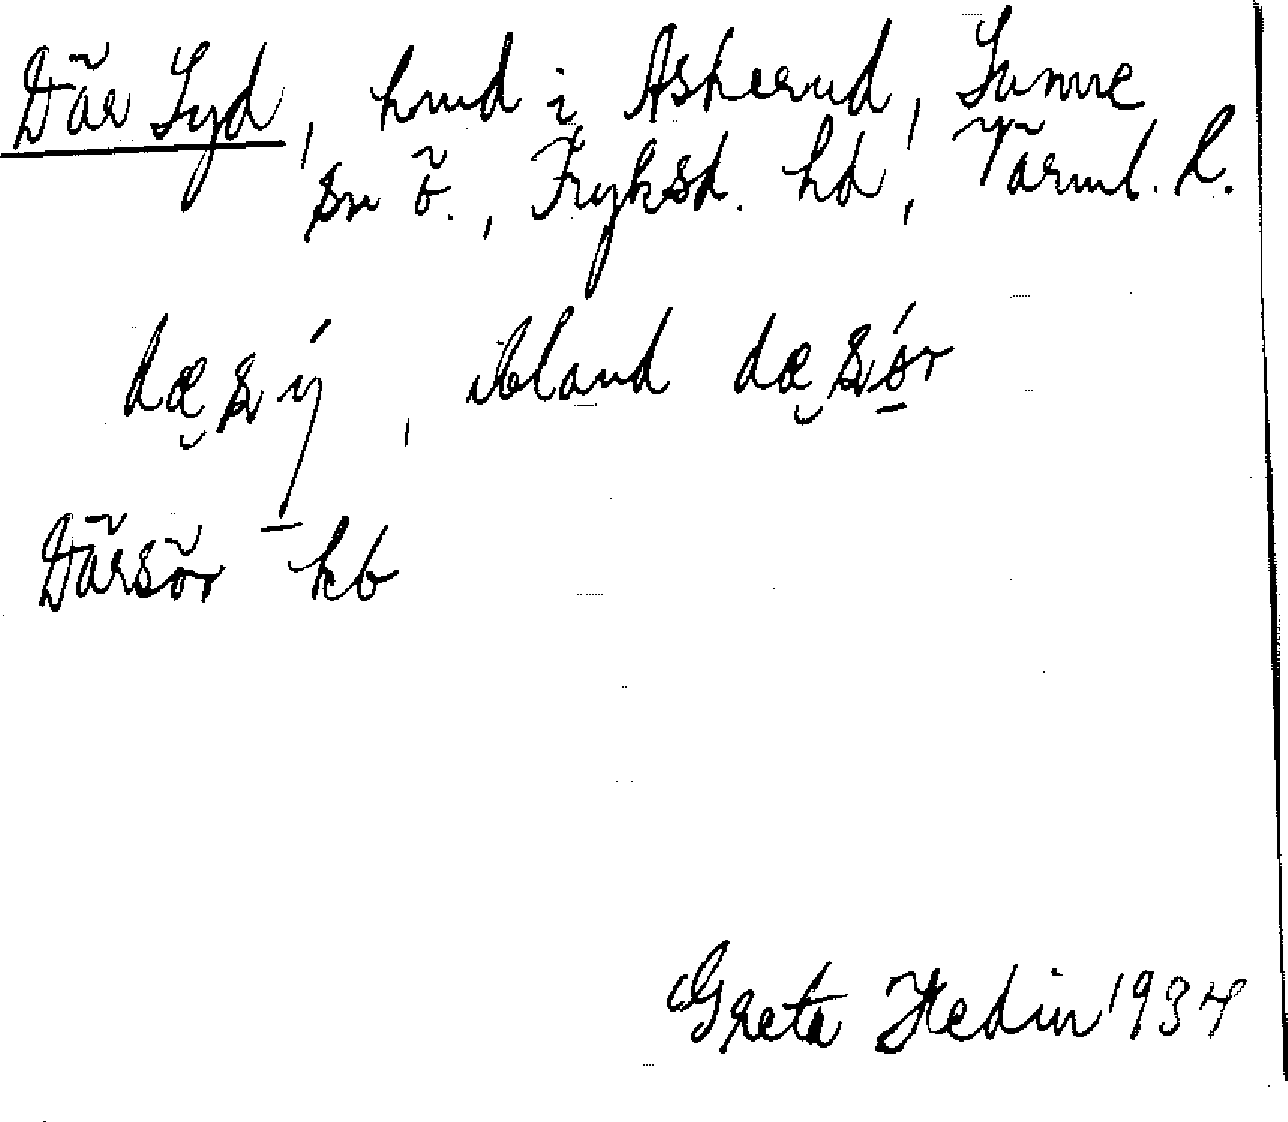 Där Syd, hmd i Askerud, Sunne
sn ö., Fryksd. hd, Värml. l.
dæ sý, ibland dæ sǿr
Därsör kb
Greta Hedin 1934